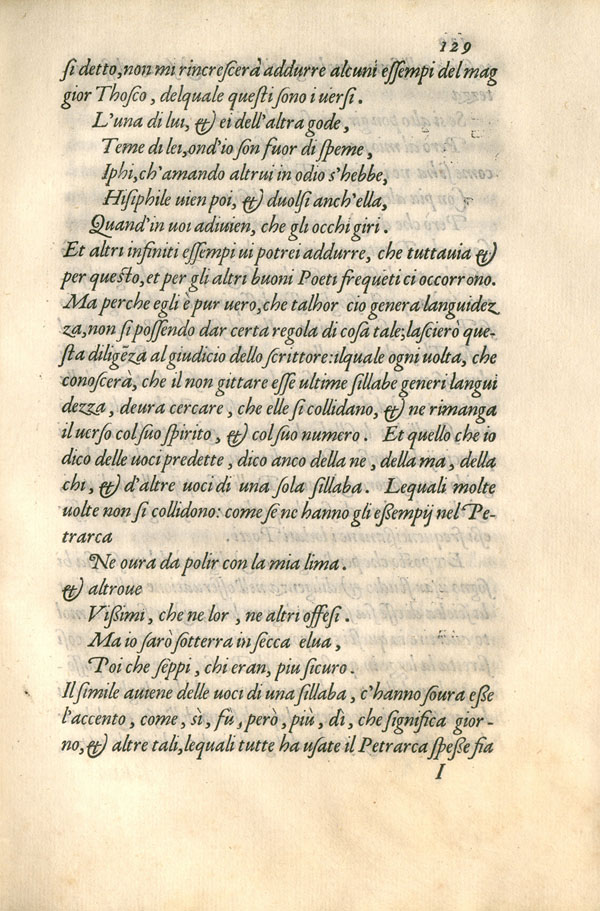 129
si detto, non mi rincrescerà addurre alcuni essempi del mag
gior Thosco, delquale questi sono i versi.
L'una di lui, & ei dell'altra gode,
Teme di lei, ond'io son fuor di speme,
Iphi, ch'amando altrui in odio s'hebbe,
Hisiphile uien poi, & duolsi anch'ella,
Quand'in uoi adiuien, che gli occhi giri.
Et altri infiniti essempi ui potrei addurre, che tuttauia &
per questo, et per gli altri buoni Poeti frequeti ci occorrono.
Ma perche egli è pur uero, che talhor cio genera languidez
za, non si possendo dar certa regola di cosa tale; lascierò que-
sta diligẽza al giudicio dello scrittore: ilquale ogni uolta, che
conoscerà, che il non gittare esse ultime sillabe generi langui
dezza, deura cercare, che elle si collidano, & ne rimanga
il uerso col suo spirito, & col suo numero. Et quello che io
dico delle uoci predette, dico anco della ne, della ma, della
chi, & d'altre uoci di una sola sillaba. Lequali molte
uolte non si collidono: come se ne hanno gli essempij nel Pe-
trarca
Ne oura da polir con la mia lima.
& altroue
Vissimi, che ne lor, ne altri offesi.
Ma io sarò sotterra in secca elua,
Poi che seppi, chi eran, piu sicuro.
Il simile auiene delle uoci di una sillaba, c'hanno soura esse
l'accento, come, sì, fù, però, più, dì, che significa gior-
no, & altre tali, lequali tutte ha usate il Petrarca spesse fia
I